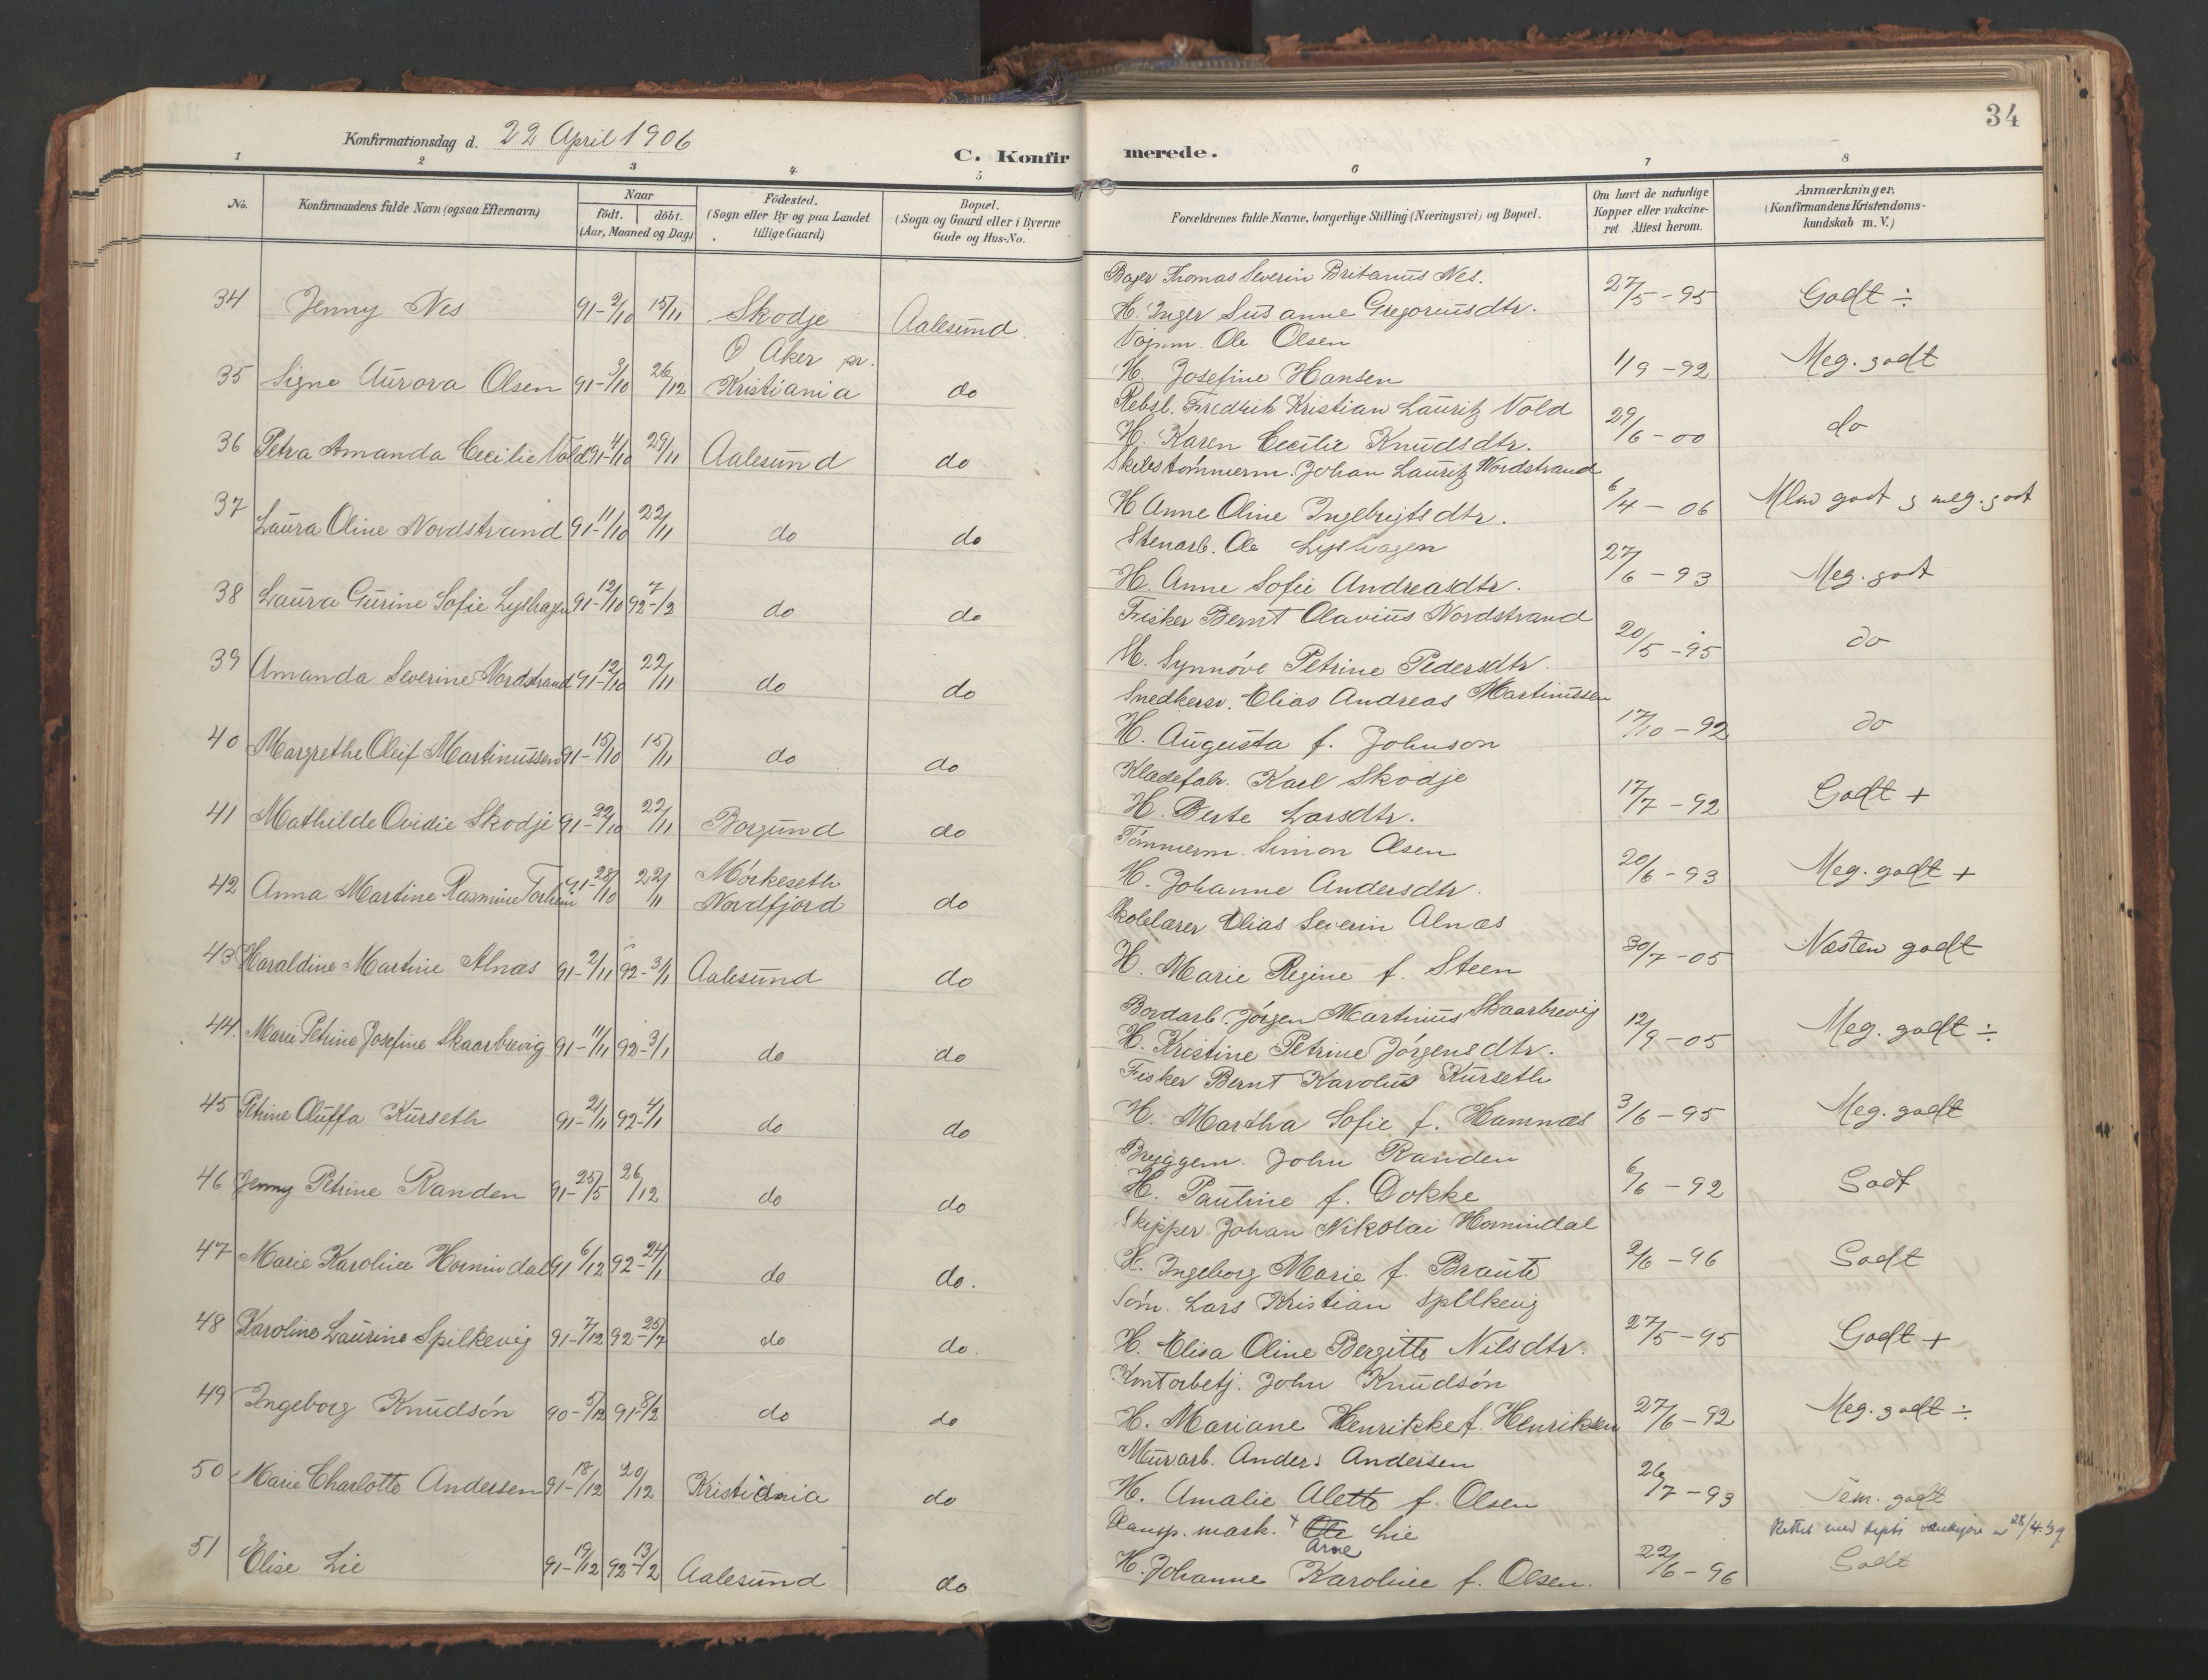 34
Konfirmationsdag d. 22 April 1906
C. Konfirmerede.
1 2 3 4 5 6 7 8
No.
Konfirmandens fulde Navn (ogsaa Efternavn)
Naar
födt. döbt.
(Aar, Maaned og Dag)
Födested.
(Sogn eller By og paa Landet
tillige Gaard)
Bopæl.
(Sogn og Gaard eller i Byerne
Gade og Hus-No.
Forældrenes fulde Navne, borgerlige Stilling (Næringsvei) og Bopæl.
Om havt de naturlige
Kopper eller vakcine-
ret. Attest herom.
Anmærkninger.
(Konfirmandens Kristendoms-
kundskab m. V.)
Bager Thomas Severin Britanus Nes.
34 Jenny Nes 91-2/10 15/11 Skodje Aalesund H. Inger Susanne Gregoriusdtr. 27/5-95 Godt ÷
Vognm. Ole Olsen
Ø Aker pr.
35 Signe Aurora Olsen 91-3/10 26/12 Kristiania do H. Josefine Hansen 1/9-92 Meg. godt
Rebsl. Fredrik Kristian Lauritz Vold
36 Petra Amanda Cecilie Vold 91-4/10 29/11 Aalesund do H. Karen Cecilie Knudsdtr. 29/6-00 do
Skibstømmerm. Johan Lauritz Nordstrand
37 Laura Oline Nordstrand 91-11/10 22/11 do do H Anne Oline Ingebrigtsdtr. 6/4-06 Mlm godt g meg. godt
Stenarb. Ole Lyshagen
38 Laura Gurine Sofie Lyshagen 91-12/10 92-7/2 do do H. Anne Sofie Andreasdtr. 27/6-93 Meg. godt
Fisker Bernt Olavius Nordstrand
39 Amanda Severine Nordstrand 91-12/10 22/11 do do H. Synnøve Petrine Pedersdtr. 20/5-95 do
Snedkersv. Elias Andreas Martinussen
40 Margrethe Oleif Martinussen 91-15/10 15/11 do do H. Augusta f. Johnson 17/10-92 do
Klædefabr. Karl Skodje
41 Mathilde Ovidie Skodje 91-22/10 22/11 Borgund do H. Berte Larsdtr. 17/7-92 Godt +
Tømmerm. Simon Olsen
42 Anna Martine Rasmine Torheim 91-28/10 22/11 Mørkeseth Nordfjord do H. Johanne Andersdtr. 20/6-93 Meg. godt +
Skolelærer Elias Severin Alnæs
43 Haraldine Martine Alnæs 91-2/11 92-3/1 Aalesund do H. Marie Regine f. Steen 30/7-05 Næsten godt
Bordarb. Jørgen Martinus Skaarbrevig
44. Marie Petrine Josefine Skaarbrevig 91-11/11 92-3/1 do do H. Kristine Petrine Jørgensdtr. 12/9-05 Meg. godt ÷
Fisker Bernt Karolus Kurseth
45 Petrine Oluffa Kurseth 91-21/11 92-4/1 do do H. Martha Sofie f. Hamnæs 3/6-95 Meg. godt
Bryggem. John Randen
46 Jenny Petrine Randen 91-25/5 26/12 do do H. Pauline f. Dokke 6/6-92 Godt
Skipper Johan Nikolai Hornindal
47 Marie Karoline Hornindal 91 6/12 92-24/1 do do. H. Ingeborg Marie f. Braute 2/6-96 Godt
Søm. Lars Kristian Spilkevig
48 Karoline Laurine Spilkevig 91-7/12 92-25/7 do do. H. Elisa Oline Bergitte Nilsdtr. 27/5-95 Godt +
Kontorbetj. John Knudsøn
49 Ingeborg Knudsøn 90-5/12 91-8/2 do do H. Mariane Henrikke f. Henriksen 27/6-92 Meg. godt ÷
Murarb. Anders Andersen
50 Marie Charlotte Andersen 91-18/12 20/12 Kristiania do H. Amalie Alette f. Olsen 26/7-93 Tem. godt
Dampsp. mask. + Ole Lie 28/4.39
Arne
51 Elise Lie 91-19/12 92-13/2 Aalesund do H. Johanne Karoline f. Olsen. 22/6-96 Godt